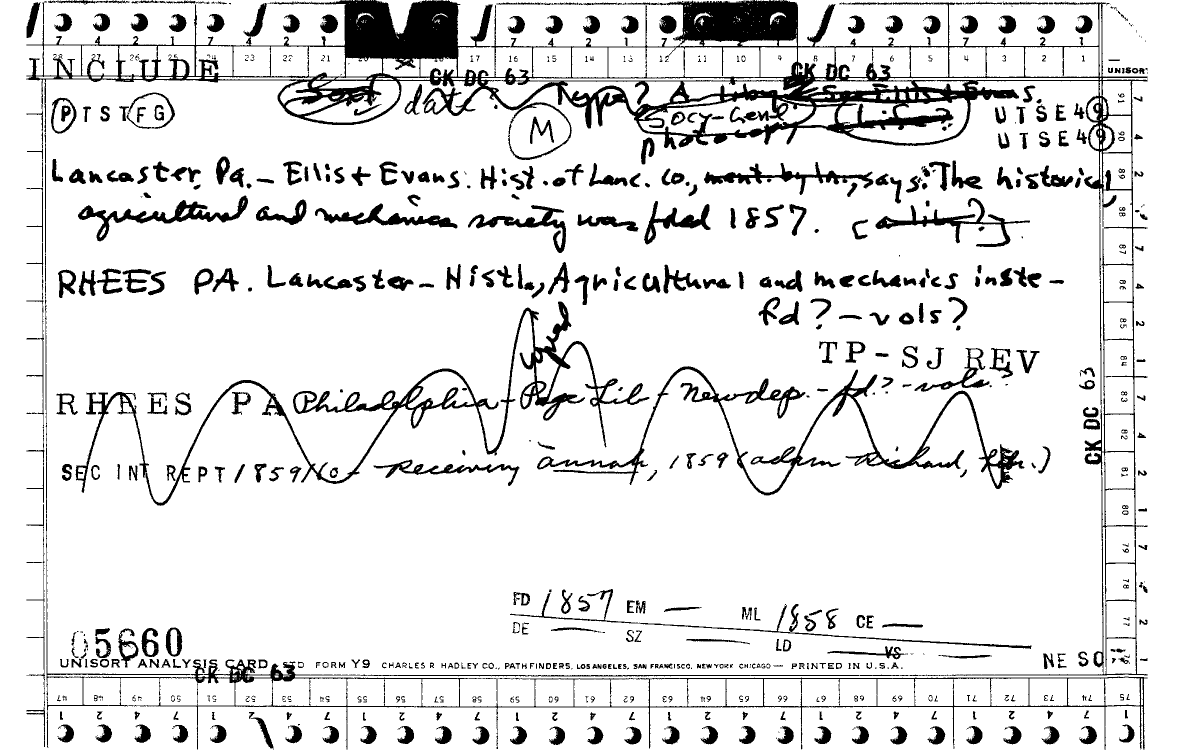 7 4 2 1 7 4 2 1 7 4 2 1 7 4 2 1
25 24 23 22 21 17 16 15 14 13 12 11 10 9 8 7 6 5 4 3 2 1
INCLUDE CK DC 63 CK DC 63 UNISORT
Sort date? Type? A liby See Ellis & Evans.
PTSTFG M Socy-Genl (Life?) UTSE49
photocopy UTSE49
Lancaster, Pa. — Ellis & Evans. Hist. of Lanc. Co., ment. by ln., says: "The historical,
agricultural and mechanics society was fded 1857. [a liby?]
RHEES PA. Lancaster — Histl., Agricultural and mechanics inste —
fd? — vols?
copied
TP-SJ REV
RHEES PA Philadelphia — Page Lib — New dep. — fd.? — vols.?
CK DC 63
SEC INT REPT/1859/60 — receiving annah, 1859 (adam Richard, Libr.)
FD 1857 EM — ML 1858 CE —
DE — SZ — LD — VS —
05660
UNISORT ANALYSIS CARD STD FORM Y9 CHARLES R HADLEY CO., PATHFINDERS, LOS ANGELES, SAN FRANCISCO, NEW YORK CHICAGO — PRINTED IN U.S.A. NE SO
CK DC 63
47 48 49 50 51 52 53 54 55 56 57 58 59 60 61 62 63 64 65 66 67 68 69 70 71 72 73 74 75
1 2 4 7 1 2 4 7 1 2 4 7 1 2 4 7 1 2 4 7 1 2 4 7 1 2 4 7 1